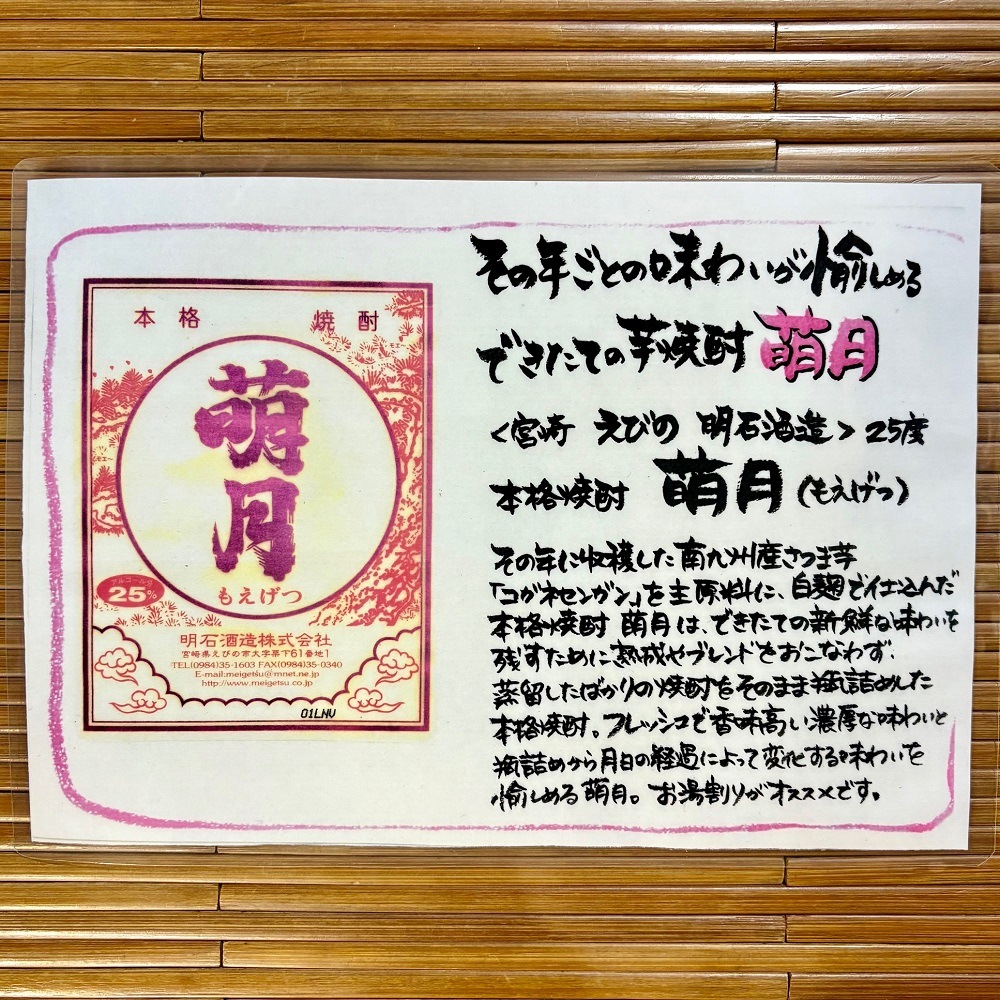 本格 焼酎
萌月
もえげつ
アルコール分
25%
明石酒造株式会社
宮崎県えびの市大字栗下61番地1
TEL.(0984)35-1603 FAX(0984)35-0340
E-mail:meigetsu@mnet.ne.jp
http://www.meigetsu.co.jp
01LNV
その年ごとの味わいが愉しめる
できたての芋焼酎 萌月
<宮崎 えびの 明石酒造> 25度
本格焼酎 萌月 (もえげつ)
その年に収穫した南九州産さつま芋
「コガネセンガン」を主原料に、白麹で仕込んだ
本格焼酎 萌月は、できたての新鮮な味わいを
残すために熟成やブレンドをおこなわず、
蒸留したばかりの焼酎をそのまま瓶詰めした
本格焼酎。フレッシュで香味高い濃厚な味わいと
瓶詰めから月日の経過によって変化する味わいを
愉しめる萌月。お湯割りがオススメです。